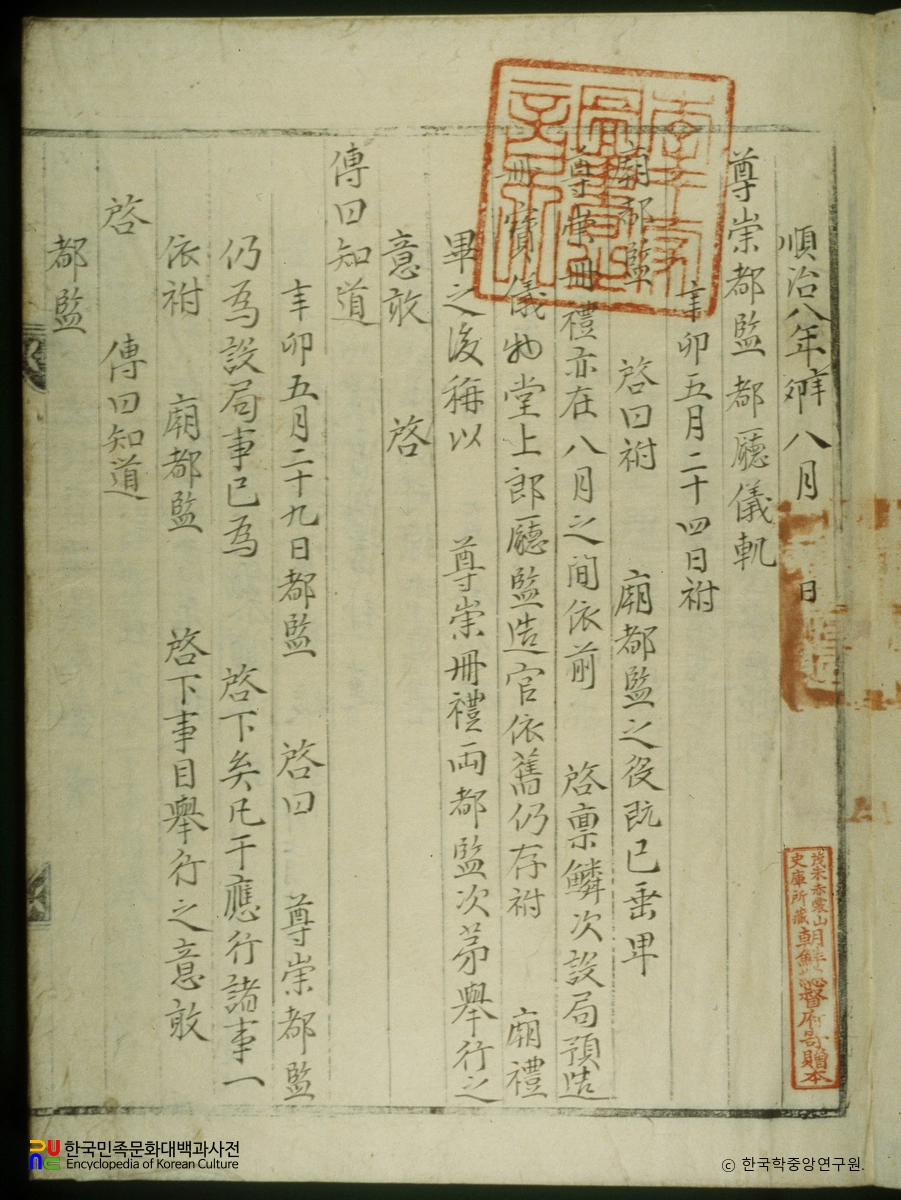 順治八年辛卯八月 日
尊崇都監都廳儀軌
辛卯五月二十四日祔
廟都監 啓曰祔 廟都監之役既已垂畢
尊崇冊禮亦在八月之間依前 啓稟鱗次設局預造
冊寶儀物堂上郎廳監造官依舊仍存祔 廟禮
畢之後稱以 尊崇冊禮両都監次苐舉行之
意敢 啓
傳曰知道
辛卯五月二十九日都監 啓曰 尊崇都監
仍為設局事已為 啓下矣凡干應行諸事一
依祔 廟都監 啓下事目舉行之意敢
啓 傳曰知道
都監
茂朱赤裳山
史庫所藏
朝鮮總督府寄贈本
한국민족문화대백과사전
Encyclopedia of Korean Culture
© 한국학중앙연구원.